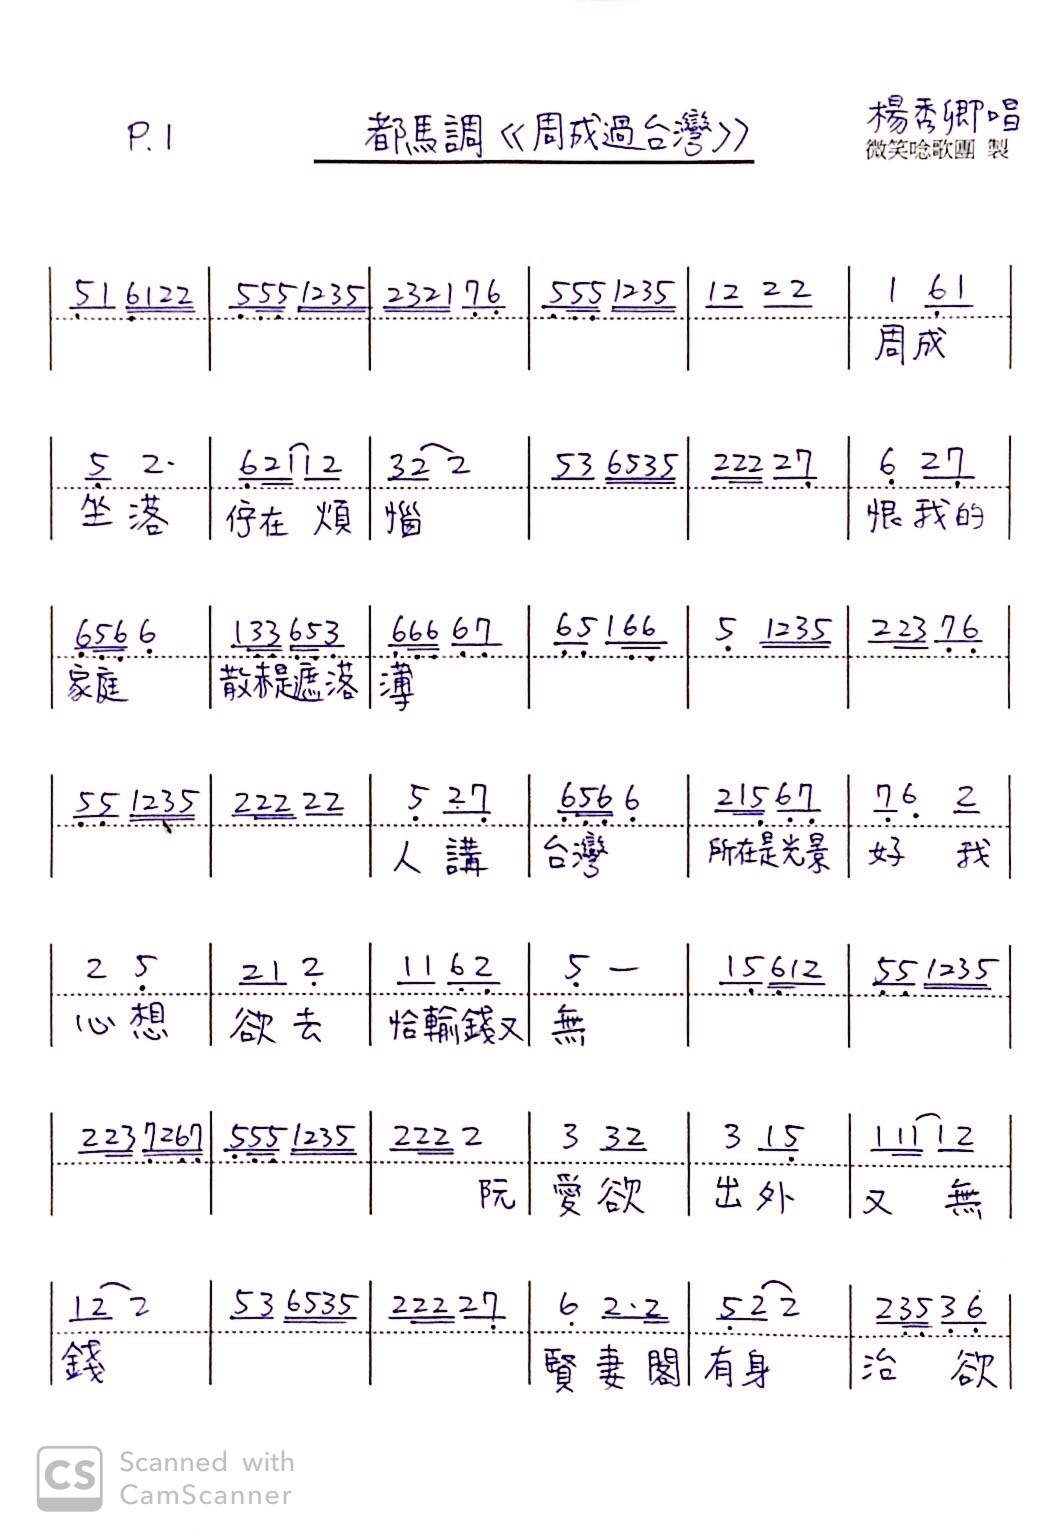 楊秀卿唱
P.1 都馬調《周成過台灣》
微笑唸歌團 製
51 6122 | 555 1235 | 2321 76 | 555 1235 | 12 22 | 1 61
周成
5 2· | 621 12 | 32 2 | 53 6535 | 222 27 | 6 27
坐落 停在 煩 惱 恨我的
656 6 | 133 653 | 666 67 | 65 166 | 5 1235 | 223 76
家庭 散赤是遮落 薄
55 1235 | 222 22 | 5 27 | 656 6 | 215 67 | 76 2
人講 台灣 所在是光景 好 我
2 5 | 21 2 | 11 62 | 5 — | 15 612 | 55 1235
心想 欲去 恰輸錢又 無
223 7267 | 555 1235 | 222 2 | 3 32 | 3 15 | 111 12
阮 愛欲 出外 又 無
12 2 | 53 6535 | 222 27 | 6 2·2 | 52 2 | 235 36
錢 賢妻閣 有身 治 欲
CS Scanned with
CamScanner